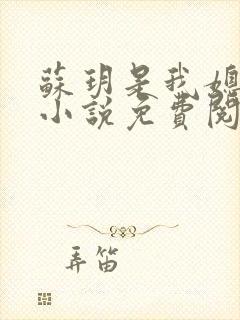 蘇玥是我媳
小說免費閱
弄笛